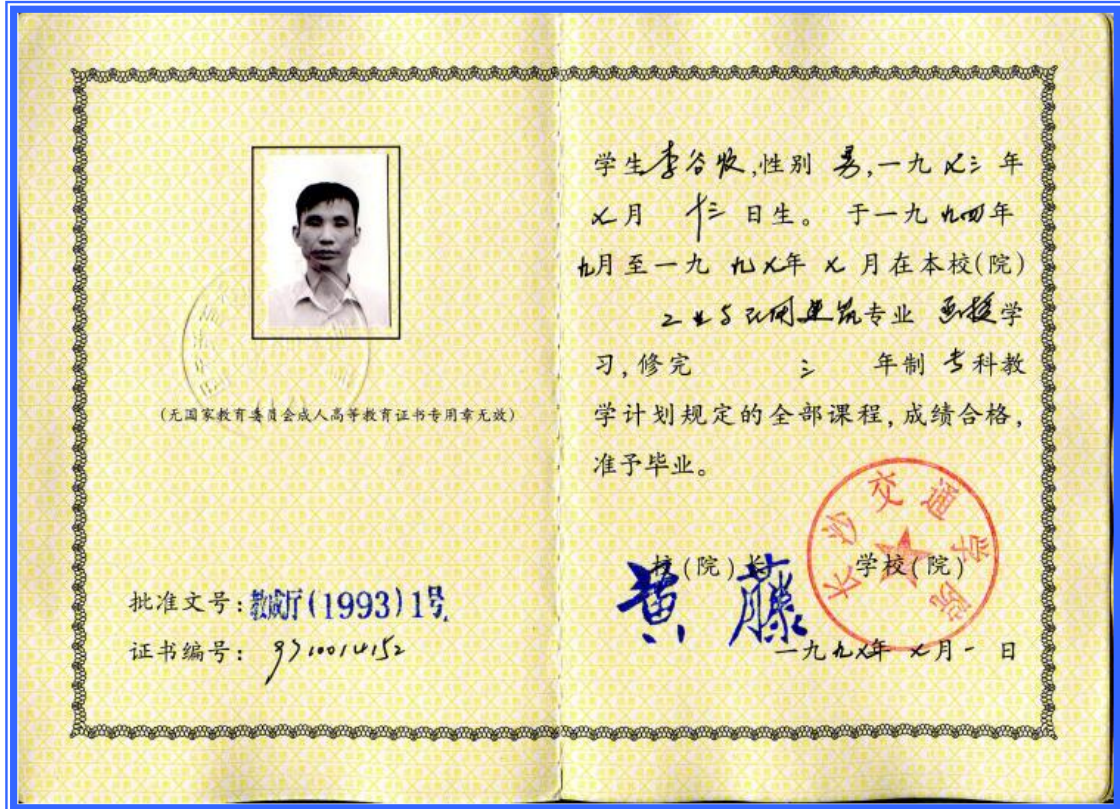 (无国家教育委员会成人高等教育证书专用章无效)
批准文号:教成厅(1993)1号
证书编号: 9710014152
学生李谷牧,性别 男,一九七三 年
七月 十三 日生。 于一九九四年
九月至一九九七年 七 月在本校(院)
工业与民用建筑专业 函授学
习,修完 三 年制 专科教
学计划规定的全部课程,成绩合格,
准予毕业。
校(院)长 学校(院)
黄藤
长沙交通学院
一九九七年 七月一 日